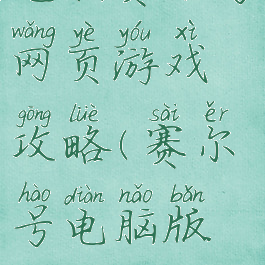 wǎng yè yóu xì
网页游戏
gōng lüè sài ěr
攻略(赛尔
hào diàn nǎo bǎn
号电脑版